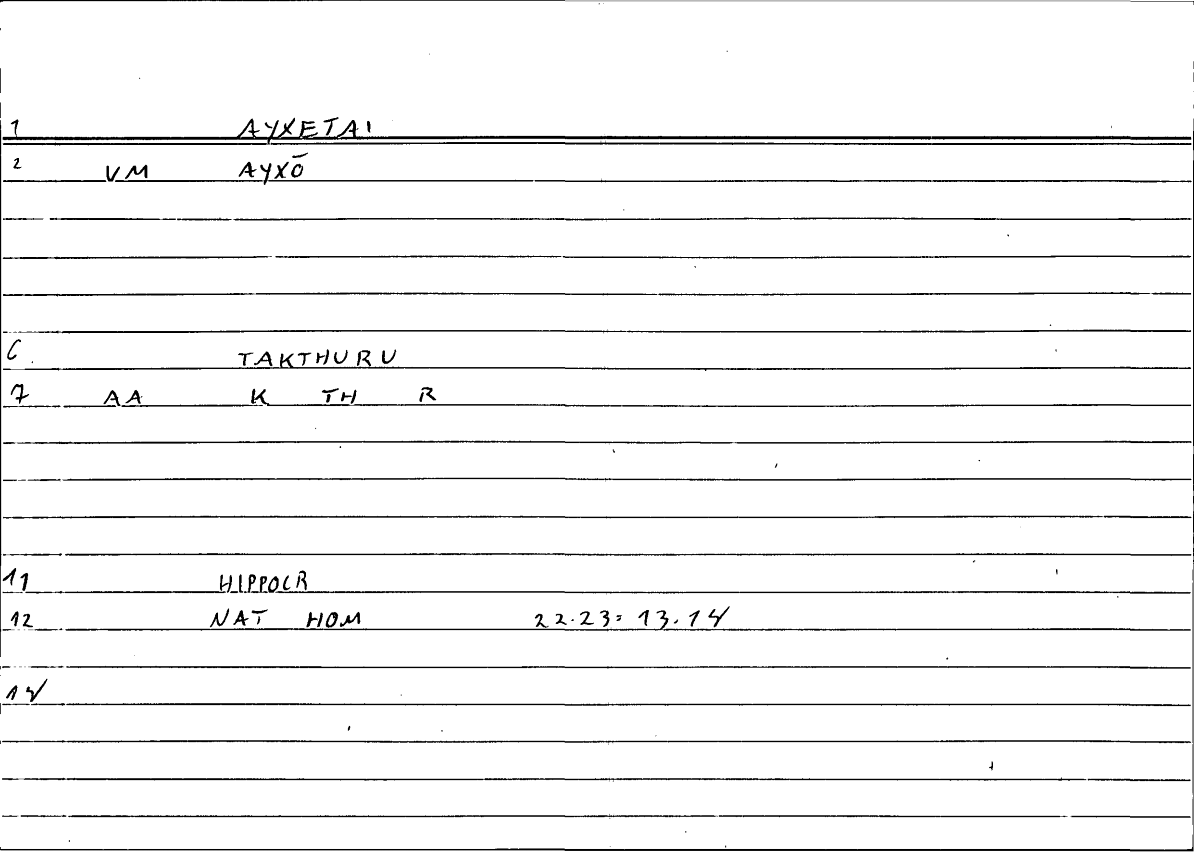 1 AYXETAI
2 VM AYXŌ
6. TAKTHURU
7 AA K TH R
11 HIPPOCR
12 NAT HOM 22.23: 13.14
14